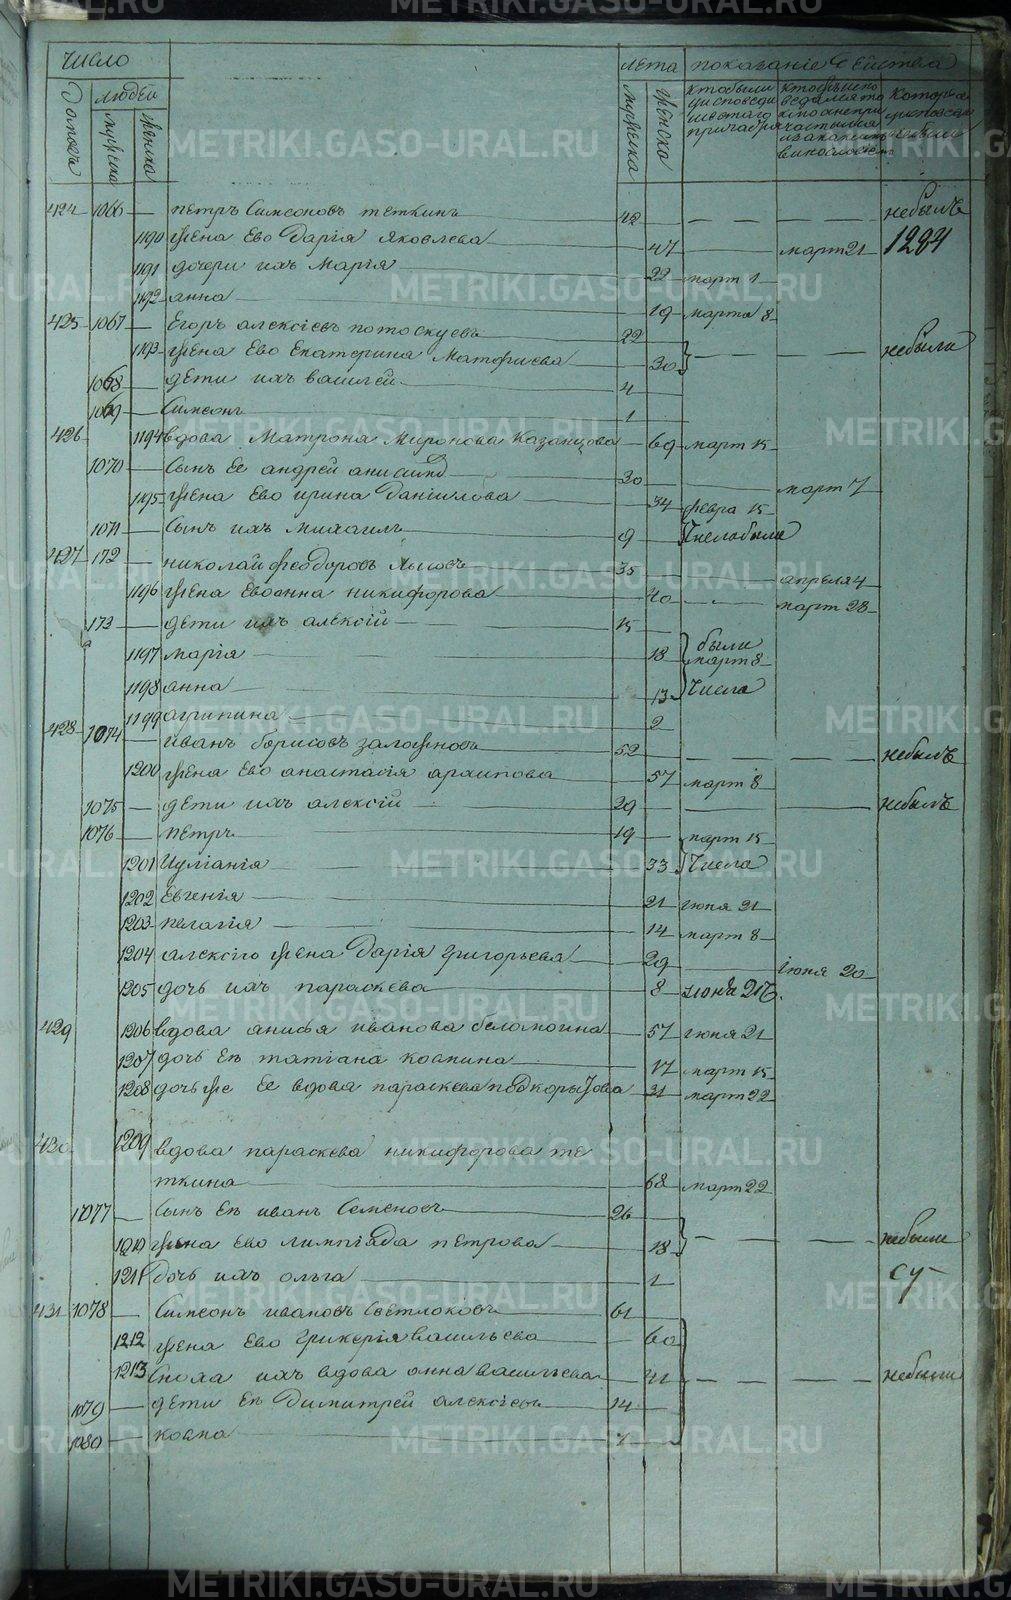 число лета показаніе действа
домовъ людей мужска женска
мужска женска
424 1066 петръ Симеоновъ теткинъ 42 небылъ
1190 жена Ево Дарія Яковлева 47 март 21 1284
1191 дочери ихъ Марія 22 март 1
1192 анна 19 марта 8
425 1067 Егоръ алексіевъ потоскуевъ 22
1193 жена Ево Екатерина Матфиева 20 небыли
1068 дети ихъ василей 4
1069 Симеонъ 1
426 1194 вдова Матрона Миронова Казанцова 69 март 15
1070 Сынъ Ее андрей 30 март 7
1195 жена Ево ирина Даніилова 34 февра 15
1071 Сынъ ихъ михаилъ 9
427 172 николай феодоровъ лысовъ 35 апреля 4
1196 жена Ево анна никифорова 40 март 28
173 дети ихъ алексій 15
1197 марія 18 были март 8
1198 анна 13 Числа
1199 агрипина 2
428 1074 иванъ борисовъ заложновъ 52 небылъ
1200 жена Ево анастасія архипова 57 март 8
1075 дети ихъ алексій 29 небылъ
1076 петръ 19 март 15
1201 Иуліанія 33 Числа
1202 Евгенія 21 іюня 21
1203 пелагія 14 март 8
1204 алексіго жена Дарія григорьева 29 іюня 20
1205 дочь ихъ параскева 8
429 1206 вдова анисья иванова беломоина 57 іюня 21
1207 дочь Ея татіана 17 март 15
1208 дочь же Ее вдова параскева подкорытова 31 март 22
430 1209 вдова параскева никифорова те
ткина 68 март 22
1077 Сынъ Ея иванъ Семеновъ 26
1210 жена Ево лимпіяда петрова 18 небыли
1211 дочь ихъ ольга 1
431 1078 Симеонъ ивановъ Светлоковъ 61
1212 жена Ево Гликерія васильева 60
1213 Сноха ихъ вдова анна васильева 41 небыли
1079 дети Ея Димитрей алексіевъ 14
1080 косма 7
METRIKI.GASO-URAL.RU